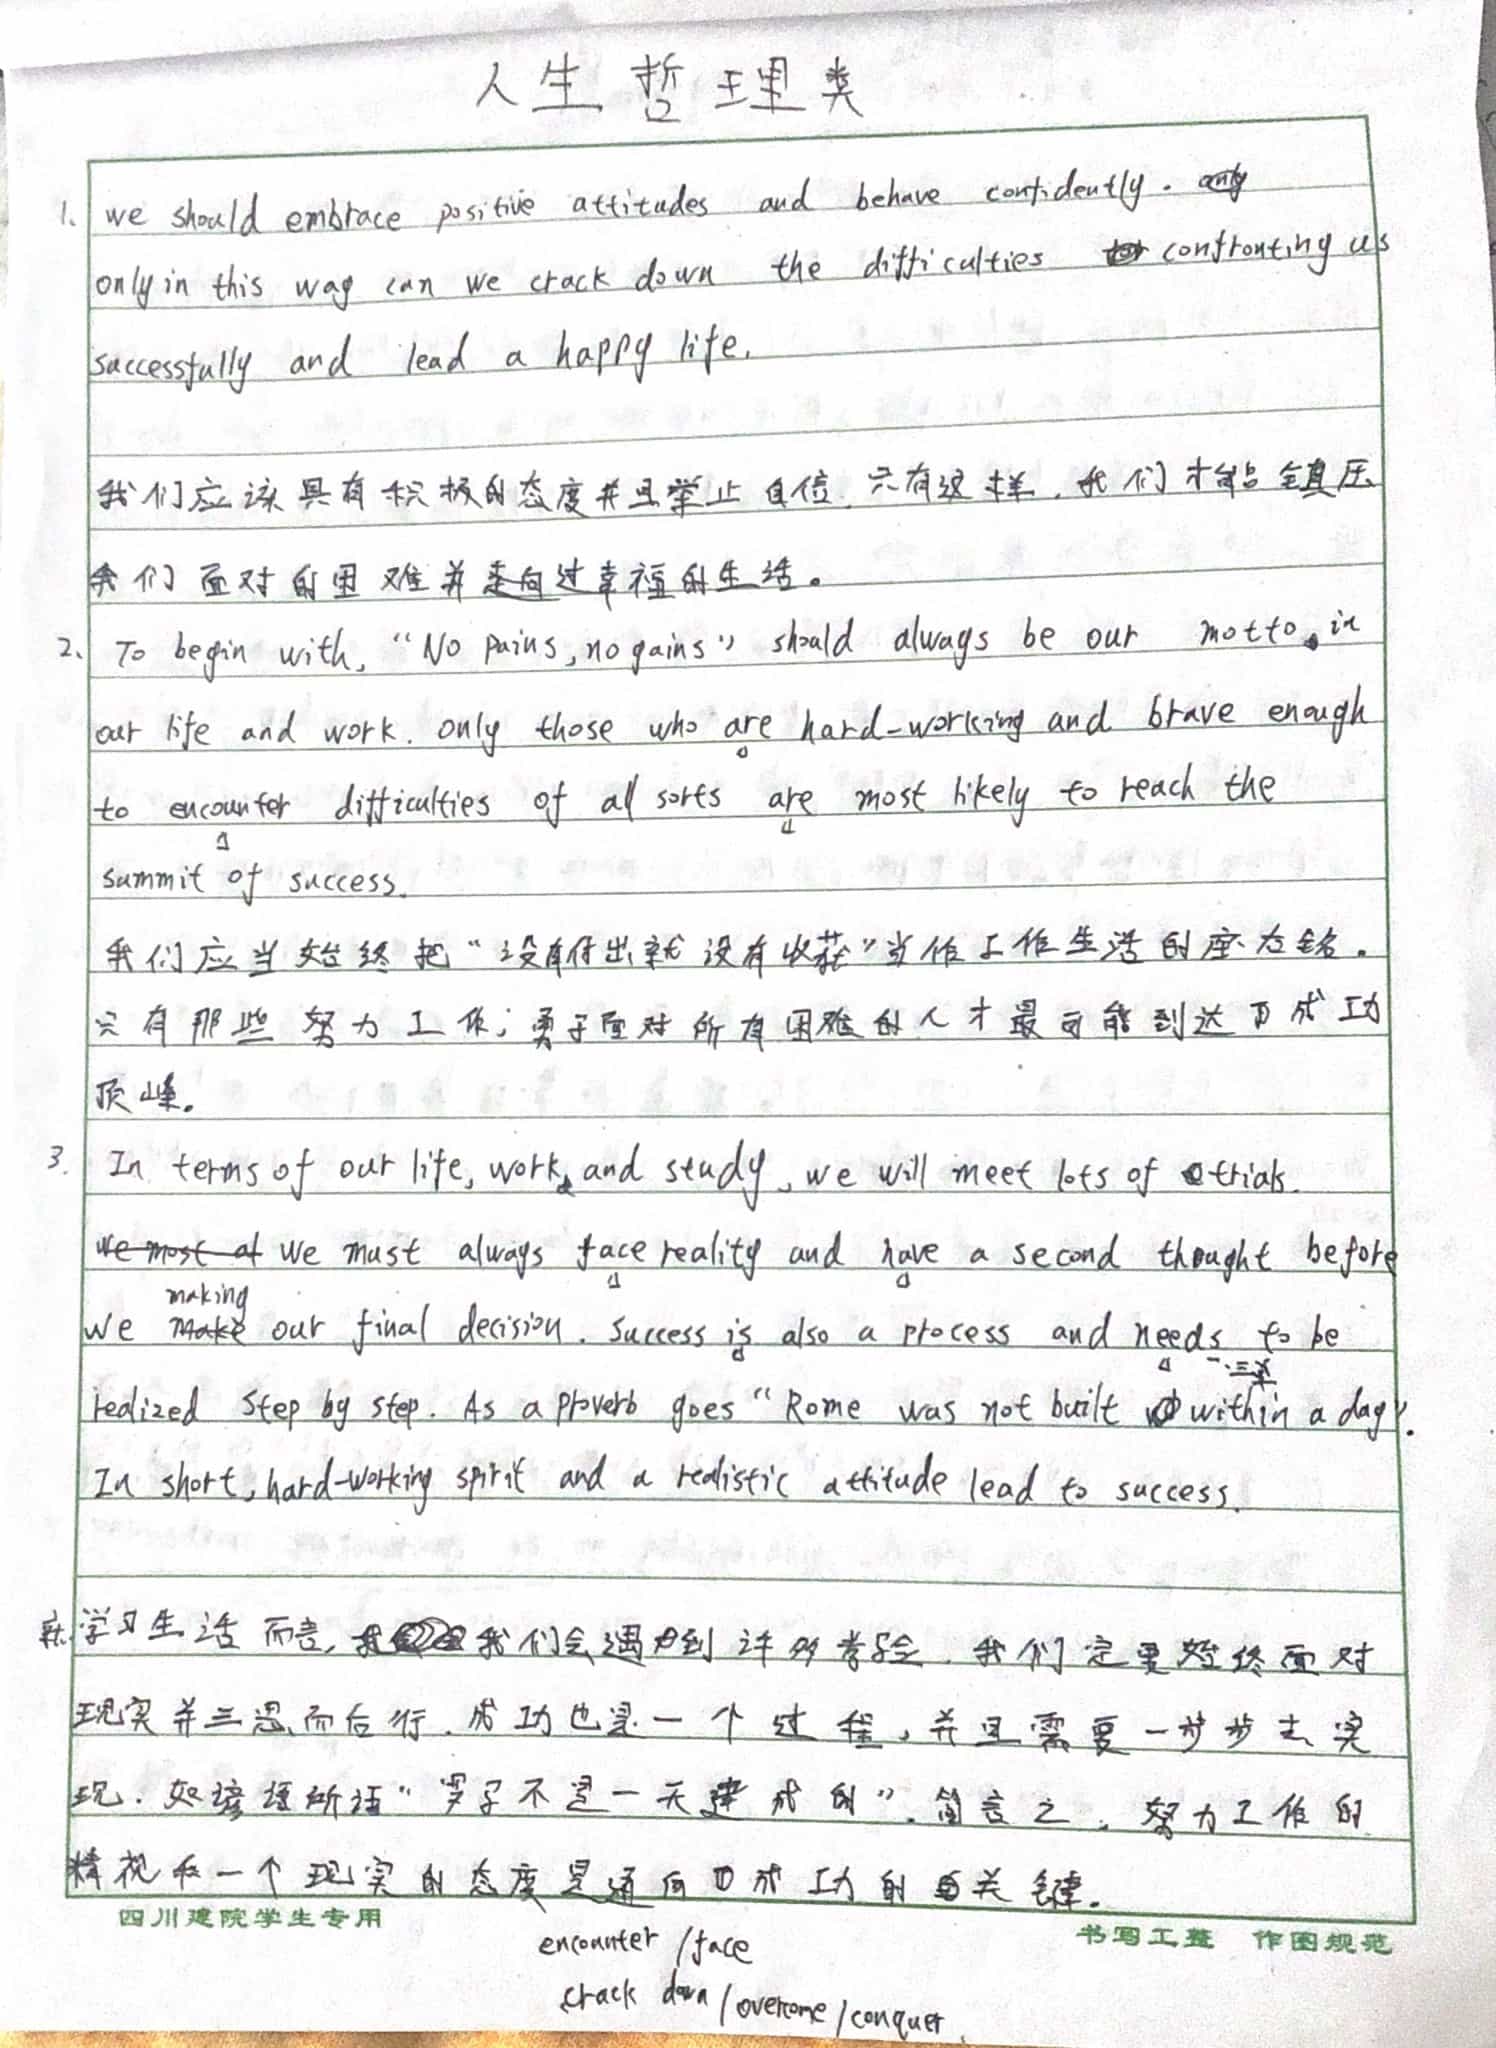 人生哲理类
1. we should embrace positive attitudes and behave confidently.
only in this way can we crack down the difficulties confronting us
successfully and lead a happy life.
我们应该具有积极的态度并且举止自信.只有这样.我们才能镇压
我们面对的困难并走向过幸福的生活。
2. To begin with, "No pains, no gains" should always be our motto in
our life and work. only those who are hard-working and brave enough
to encounter difficulties of all sorts are most likely to reach the
summit of success.
我们应当始终把"没有付出就没有收获"当作工作生活的座右铭.
只有那些努力工作,勇于面对所有困难的人才最可能到达成功
顶峰.
3. In terms of our life, work, and study, we will meet lots of trials.
we most at we must always face reality and have a second thought before
making
we make our final decision. Success is also a process and needs to be
一.三单
realized step by step. As a proverb goes "Rome was not built within a day".
In short, hard-working spirit and a realistic attitude lead to success.
学习生活而言,我们会遇到许多考验.我们定要始终面对
现实并三思而后行.成功也是一个过程,并且需要一步步去实
现.如谚语所语"罗马不是一天建成的".简言之,努力工作的
精神和一个现实的态度是通向成功的关键.
四川建院学生专用
书写工整 作图规范
encounter/face
crack down/overcome/conquer